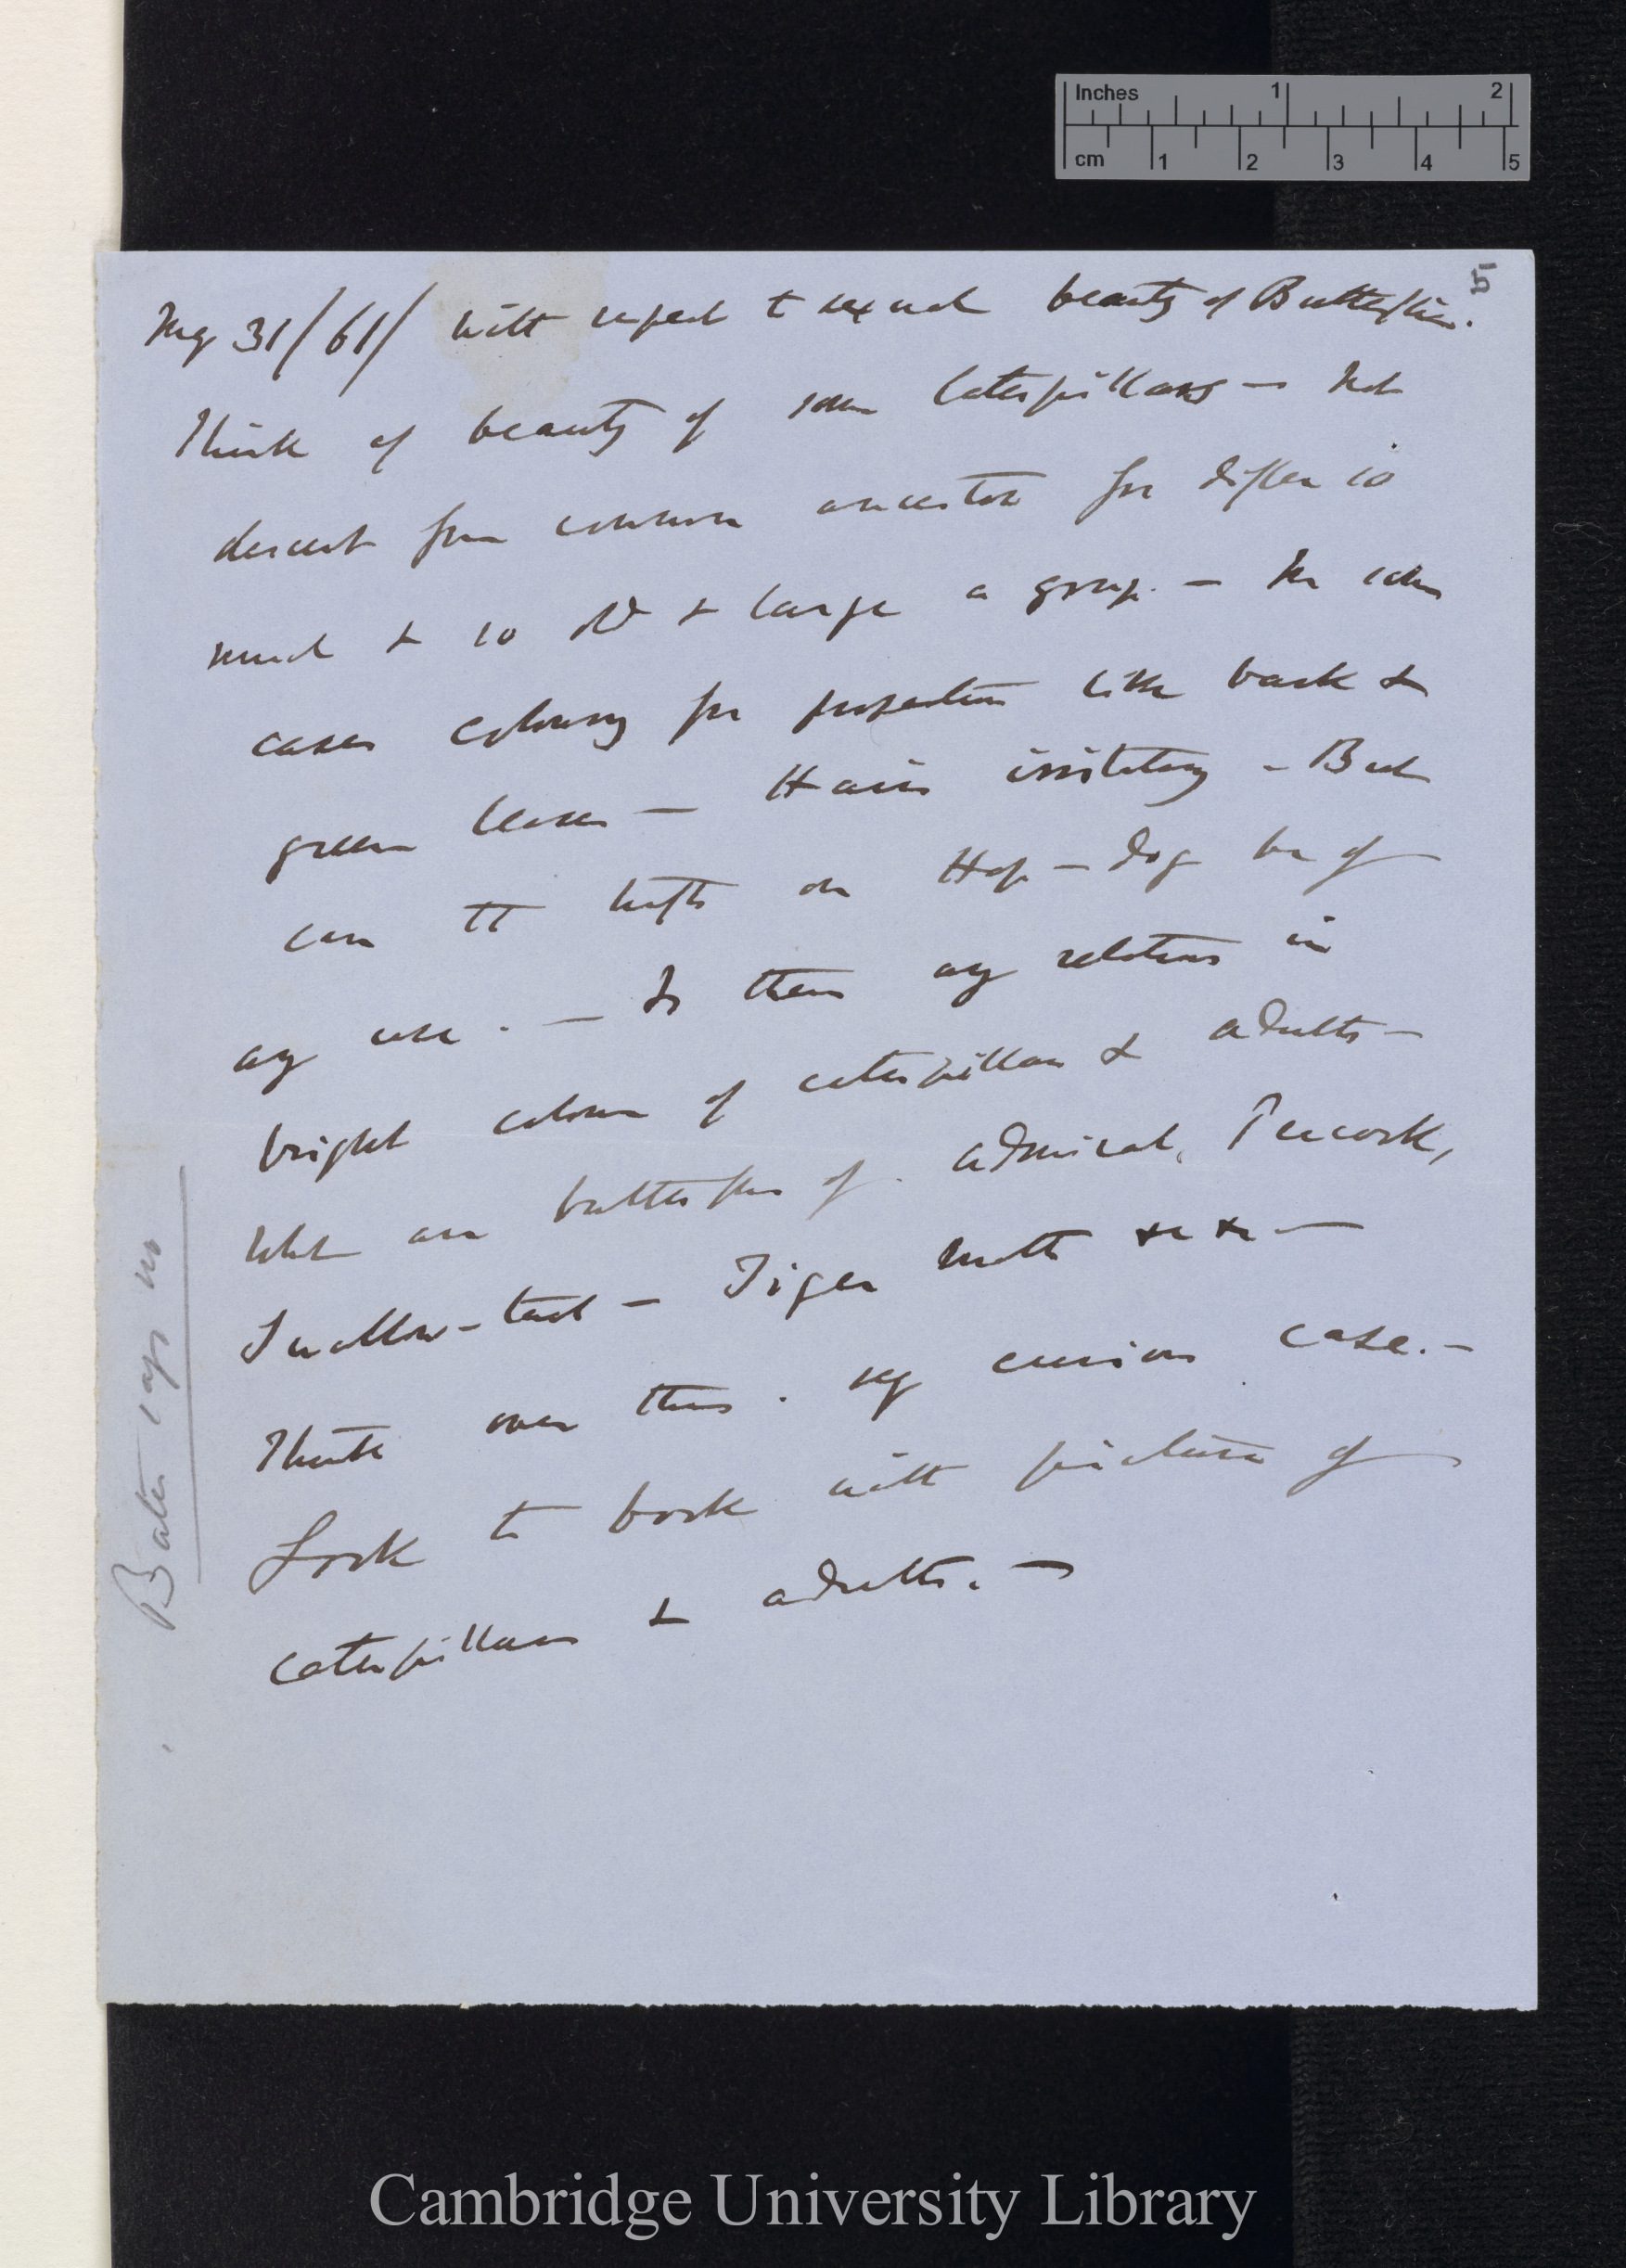 Inches 1 2
cm 1 2 3 4 5
5
May 31/61/ With respect to sexual beauty of Butterflies.
Think of beauty of some Caterpillars — Not
descent from common ancestor for differ so
much & so old & large a group. — In some
cases colouring for protection like bark &
green leaves — Hairs irritating — But
can tufts on Hop-dog be of
any use. — Is there any relation in
bright colour of caterpillar & adults —
What are butterflies of. Admiral, Peacock,
Swallow-tail — Tiger Moth &c &c —
Think over this. very curious case. —
Look to book with picture of
Caterpillars & adults. —
Bates says no
Cambridge University Library